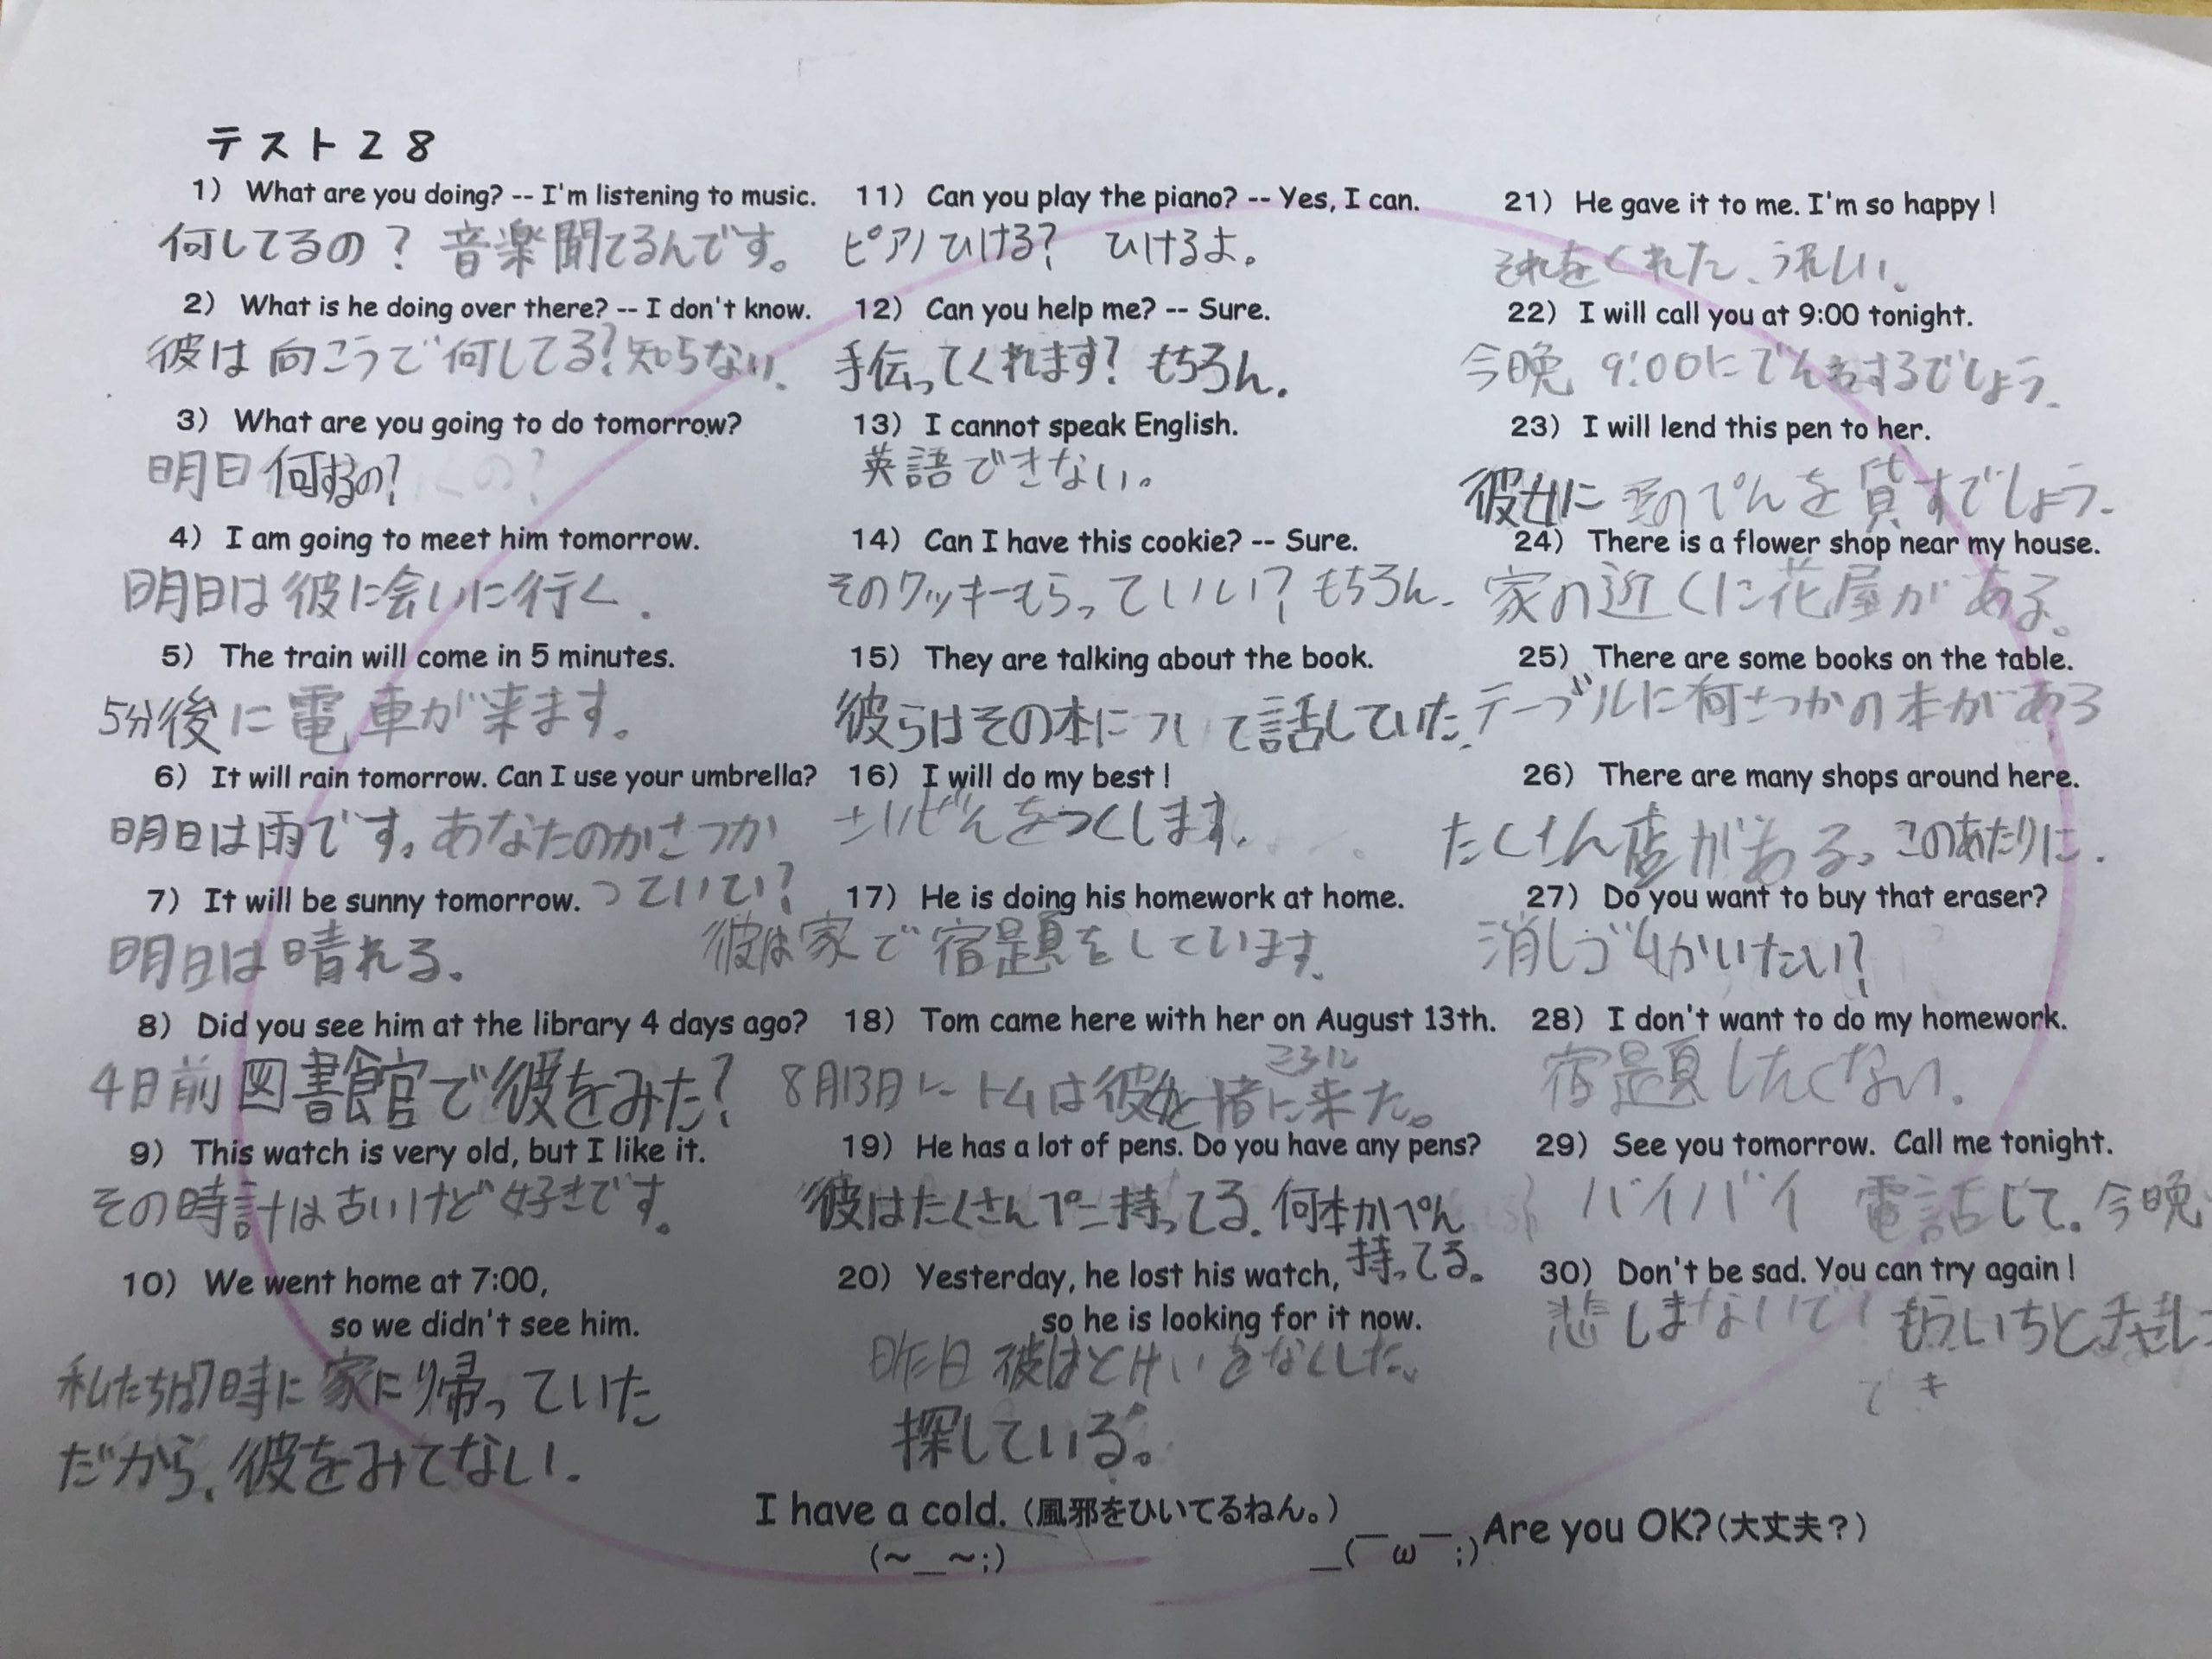 テスト28
1) What are you doing? -- I'm listening to music.
何してるの? 音楽聞てるんです。
2) What is he doing over there? -- I don't know.
彼は向こうで何してる?知らない.
3) What are you going to do tomorrow?
明日何するの?
4) I am going to meet him tomorrow.
明日は彼に会いに行く.
5) The train will come in 5 minutes.
5分後に電車が来ます。
6) It will rain tomorrow. Can I use your umbrella?
明日は雨です。あなたのかさつか
っていい?
7) It will be sunny tomorrow.
明日は晴れる.
8) Did you see him at the library 4 days ago?
4日前図書館で彼をみた?
9) This watch is very old, but I like it.
その時計は古いけど好きです。
10) We went home at 7:00,
so we didn't see him.
私たちは7時に家に帰っていた
だから、彼をみてない.
11) Can you play the piano? -- Yes, I can.
ピアノひける? ひけるよ。
12) Can you help me? -- Sure.
手伝ってくれます? もちろん.
13) I cannot speak English.
英語できない。
14) Can I have this cookie? -- Sure.
そのクッキーもらっていい? もちろん.
15) They are talking about the book.
彼らはその本について話していた.
16) I will do my best!
さいぜんをつくします.
17) He is doing his homework at home.
彼は家で宿題をしています.
18) Tom came here with her on August 13th.
ここに
8月13日に トムは彼女と緒に来た。
19) He has a lot of pens. Do you have any pens?
彼はたくさんペン持ってる. 何本かぺん
持ってる。
20) Yesterday, he lost his watch,
so he is looking for it now.
昨日 彼はとけいをなくした、
探している。
21) He gave it to me. I'm so happy!
それをくれた、うれしい.
22) I will call you at 9:00 tonight.
今晩 9:00にでんわするでしょう.
23) I will lend this pen to her.
彼女に のぺんを貸すでしょう.
24) There is a flower shop near my house.
家の近くに花屋がある。
25) There are some books on the table.
テーブルに何さつかの本がある
26) There are many shops around here.
たくさん店がある。このあたりに.
27) Do you want to buy that eraser?
消しゴムかいたい?
28) I don't want to do my homework.
宿題したくない.
29) See you tomorrow. Call me tonight.
バイバイ 電話して。今晩
30) Don't be sad. You can try again!
悲しまないで! もういちど
でき
I have a cold.(風邪をひいてるねん。)
(~__~;)
_(￣ω￣;)Are you OK?(大丈夫?)